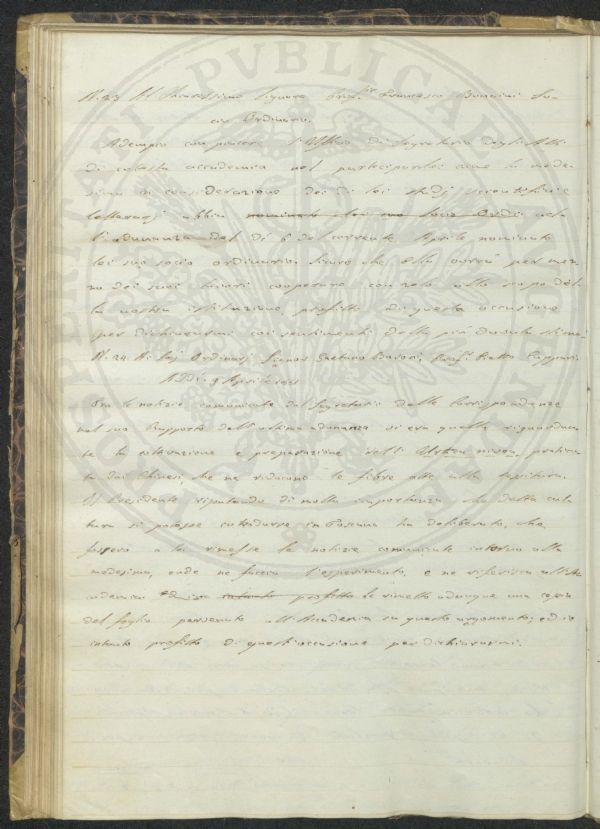 N. 23 Al Chiarissimo Signore Prof.r Francesco Bonaini So-
cio Ordinario.
Adempio con piacere l'Uffizio di Segretario degli Atti
di cotesta accademia nel parteciparlei come la mede-
sima in considerazione dei di lei studj scientifici e
letterarj abbia nominato lei suo socio Ordi nel-
l'adunanza del dí 6 del corrente Aprile, nominato
lei suo socio ordinario. Sicuro che Ella vorrà per mez-
zo dei suoi lavori cooperare con noi allo scopo del-
la nostra istituzione, profitto di questa occasione
per dichiararmi coi sentimenti della piú devota stima.
N. 24. Ai Sigg. Ordinarj Signor Gaetano Baroni, Prof.
A Dí 9 Aprile
Tra le notizie comunicate dal Segretario delle Corrispondenze
nel suo Rapporto dell'ultima adunanza vi era quella riguardan-
te la coltivazione e preparazione dell' Urtica nivea, pratica-
ta dai Chinesi, che ne riducono le fibre atte alla tessitura.
Il Presidente reputando di molta importanza che detta cul-
tura si potesse introdurre in Toscana ha deliberato, che
fossero a lei rimesse le notizie comunicate intorno alla
medesima, onde ne faccia l'esperimento, e ne riferisca all'Ac-
cademia. Ed io intanto profitto le rimetto adunque una copia
del foglio pervenuto all'Accademia su questo argomento; ed io
intanto profitto di quest'occasione per dichiararmi.
PUBLICAE